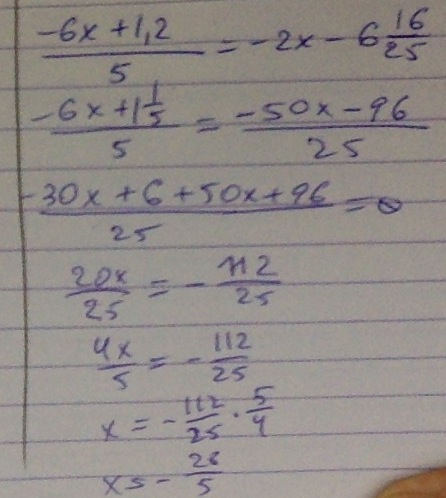 (-6x + 1,2)/5 = -2x - 6 16/25
(-6x + 1 1/5)/5 = (-50x - 96)/25
(-30x + 6 + 50x + 96)/25 = 0
20x/25 = - 112/25
4x/5 = - 112/25
x = - 112/25 · 5/4
x = - 28/5